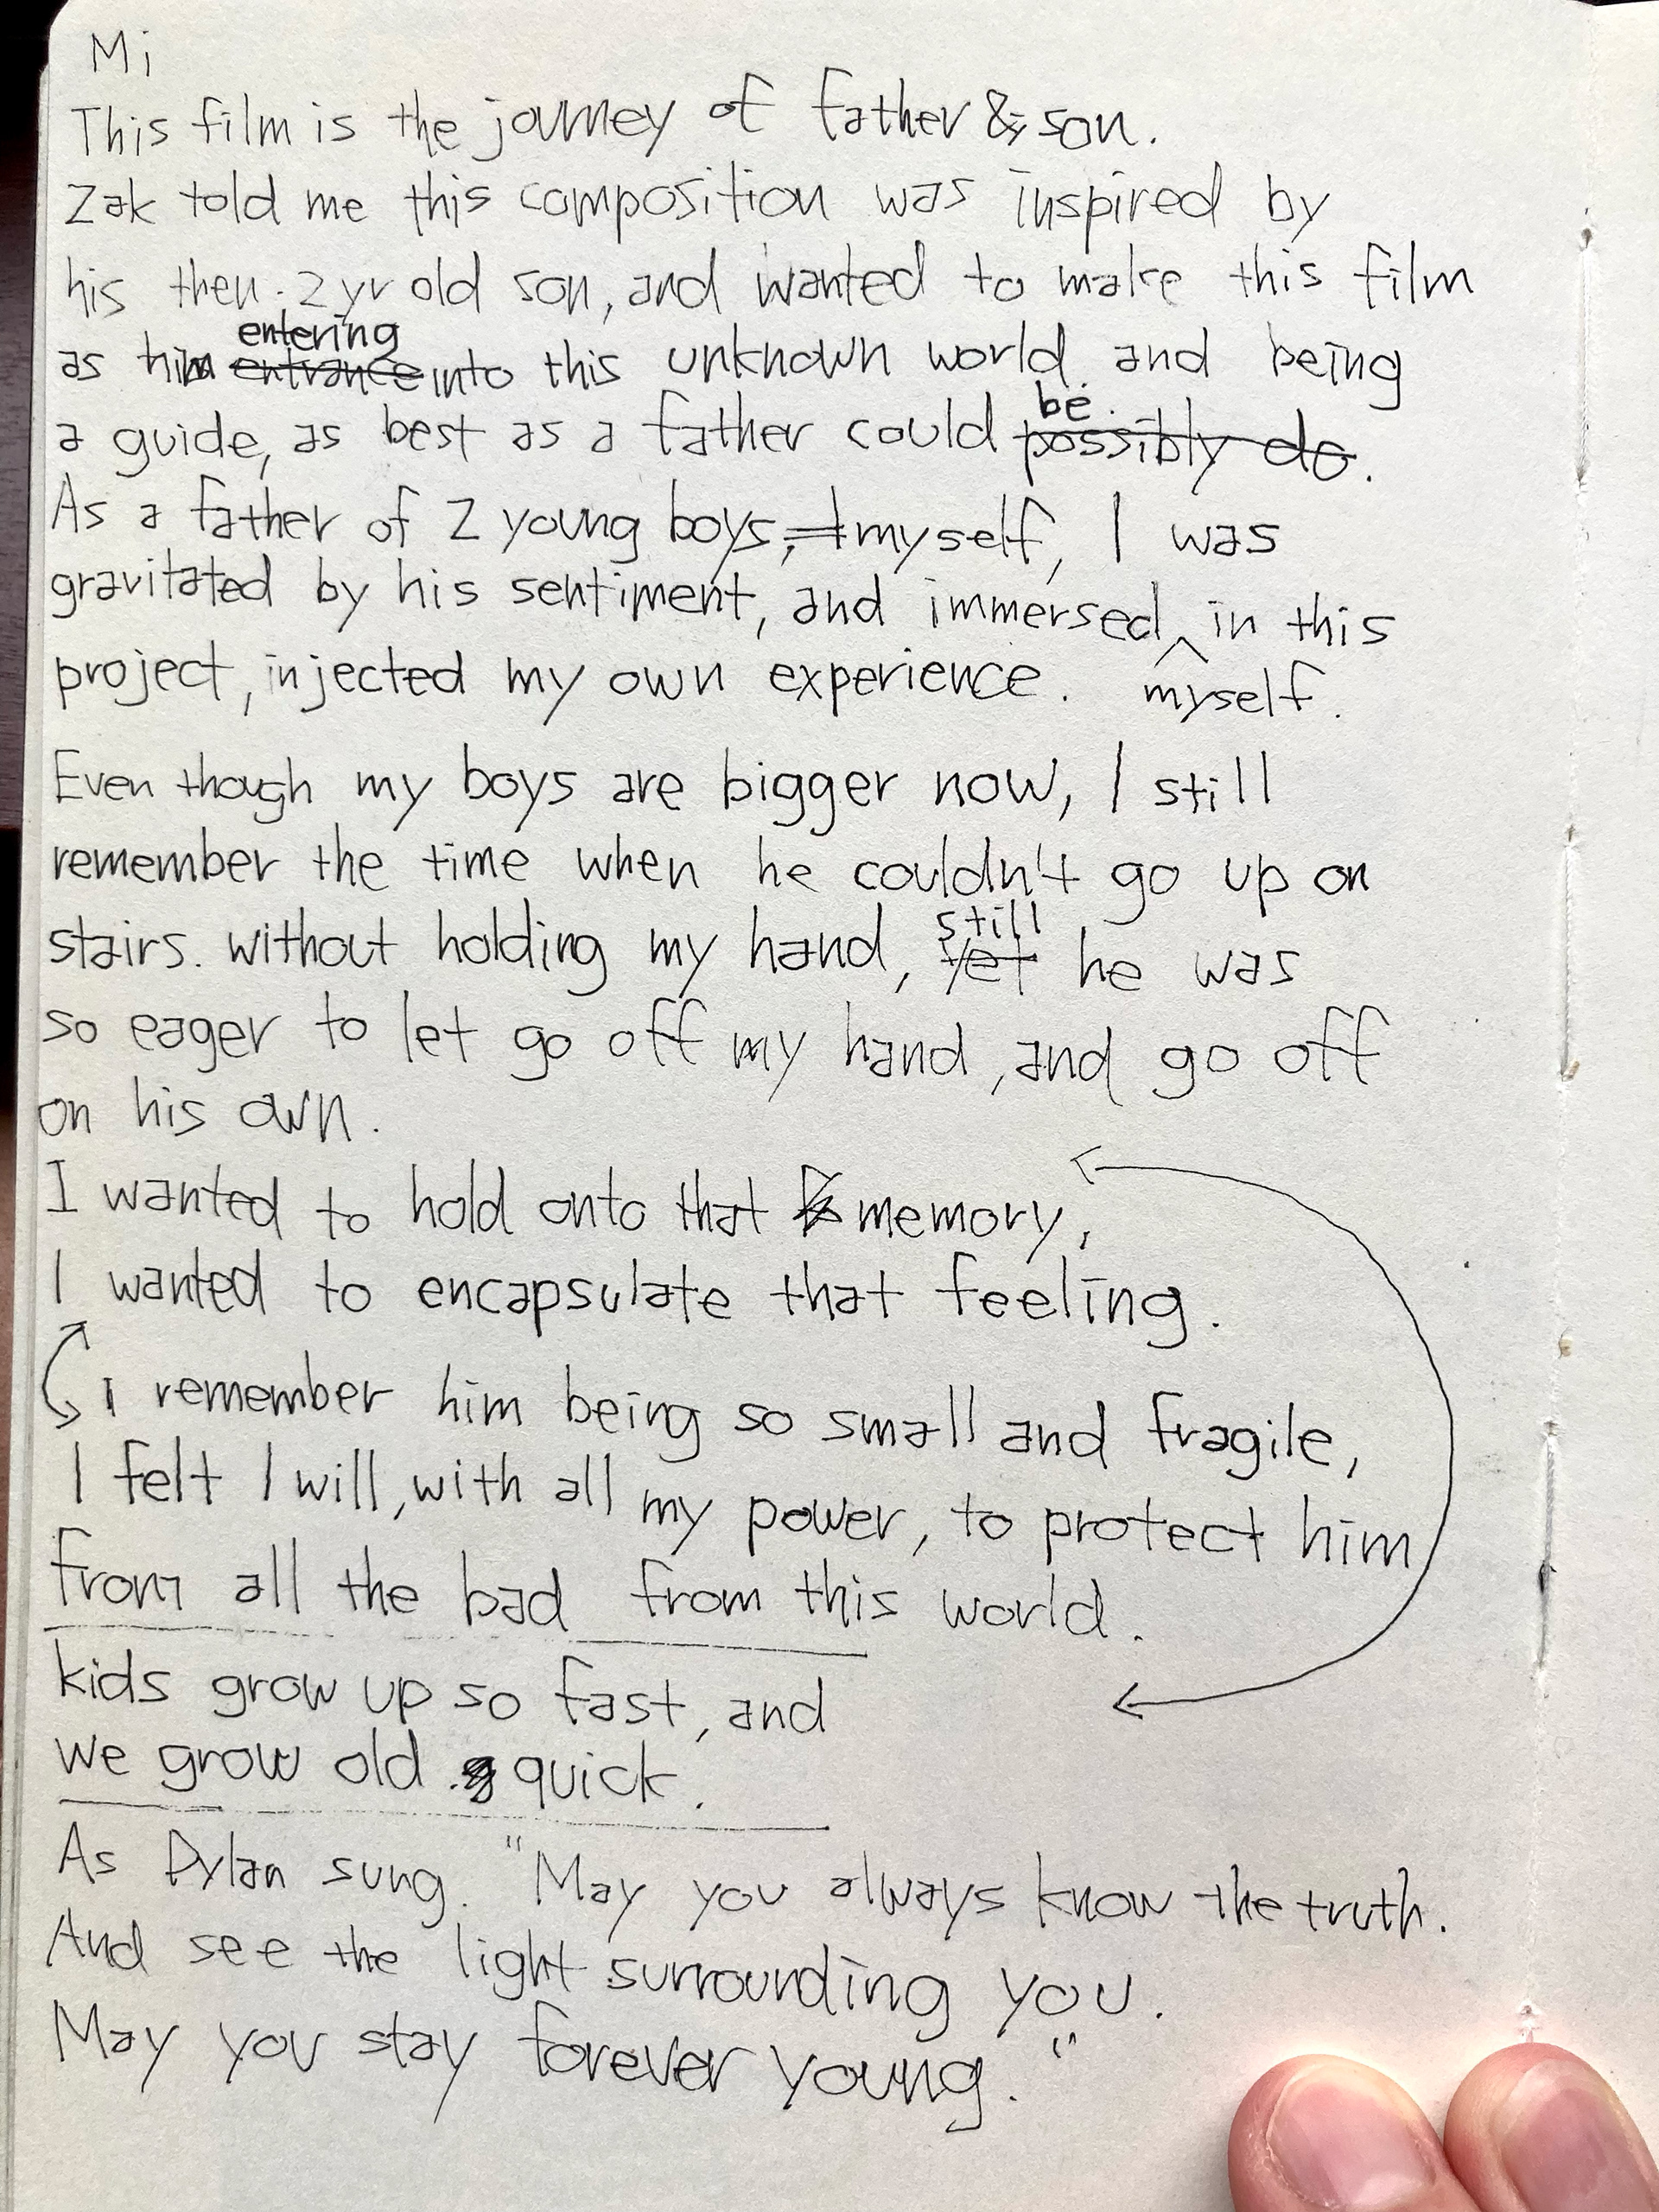 Mi
This film is the journey of father & son.
Zak told me this composition was inspired by
his then 2 yr old son, and wanted to make this film
entering
as him entrance into this unknown world. and being
be.
a guide, as best as a father could possibly do.
As a father of 2 young boys, I myself, I was
gravitated by his sentiment, and immersed ^ in this
project, injected my own experience. myself.
Even though my boys are bigger now, I still
remember the time when he couldn't go up on
still
stairs. without holding my hand, yet he was
so eager to let go off my hand, and go off
on his own.
I wanted to hold onto that memory,
I wanted to encapsulate that feeling.
I remember him being so small and fragile,
I felt I will, with all my power, to protect him
from all the bad from this world.
kids grow up so fast, and
we grow old quick.
As Dylan sung. "May you always know the truth.
And see the light surrounding you.
May you stay forever young."